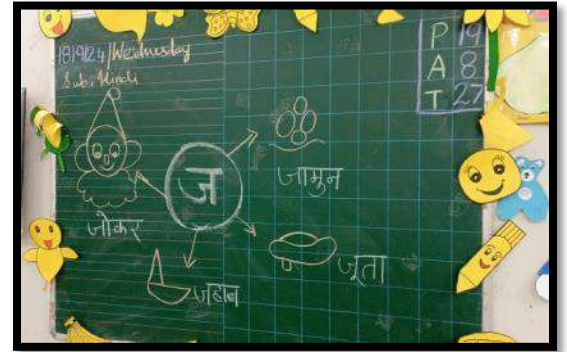 18/9/24/Wednesday
Sub: Hindi
P 19
A 8
T 27
ज
जामुन
जोकर
जूता
जहाज